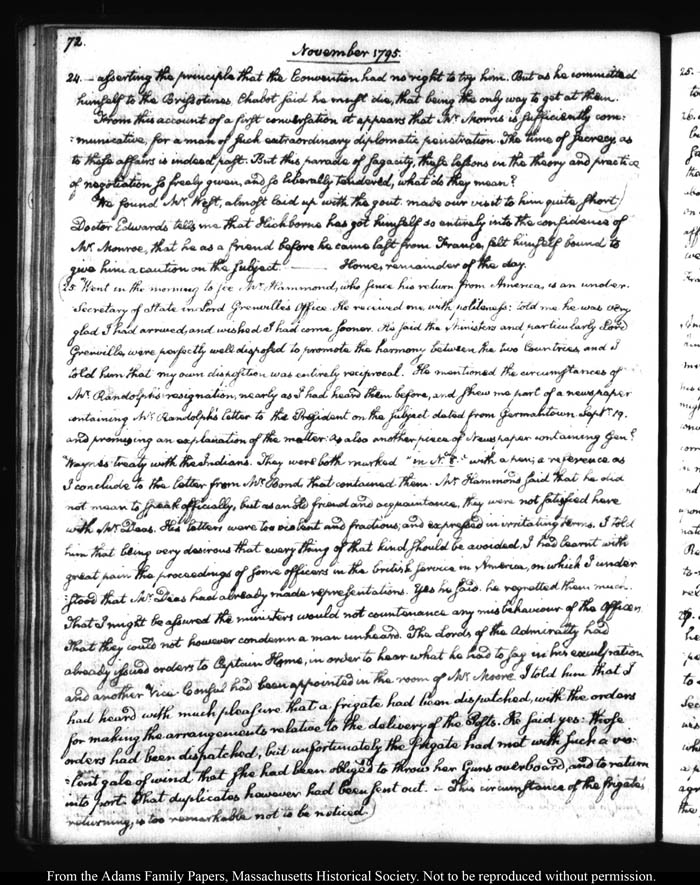 72.
November 1795.
24. — asserting the principle that the Convention had no right to try him. But as he committed
himself to the Brissotines, Chabot said he must die, that being the only way to get at them.
From this account of a first conversation it appears that Mr. Morris is sufficiently com-
:municative, for a man of such extraordinary diplomatic penetration. The time of secrecy as
to these affairs is indeed past. But this parade of sagacity, these lessons in the theory and practice
of negotiation so freely given, and so liberally tendered, what do they mean?
We found Mr. West, almost laid up with the gout. made our visit to him quite short.)
Doctor Edwards tells me that Hichborne has got himself so entirely into the confidence of
Mr. Monroe, that he as a friend before he came last from France, felt himself bound to
give him a caution on the subject. —— Home, remainder of the day.
(25. Went in the morning to see Mr. Hammond, who since his return from America, is an under-
Secretary of State in Lord Grenville's Office. He received me with politeness: told me he was very
glad I had arrived, and wished I had come sooner. He said the Ministers and particularly Lord
Grenville, were perfectly well disposed to promote the harmony between the two Countries, and I
told him that my own disposition was entirely reciprocal. He mentioned the circumstances of
Mr. Randolph's resignation, nearly as I had heard them before, and shew me part of a newspaper
containing Mr. Randolph's letter to the President on the subject dated from Germantown Septr. 19.
and promising an explanation of the matter: as also another piece of Newspaper containing Genl.
Wayne's treaty with the Indians. They were both marked "in N. 8." with a pen; a reference as
I conclude to the letter from Mr. Bond that contained them. Mr. Hammond said that he did
not mean to speak officially, but as an old friend and acquaintance, they were not satisfied here
with Mr. Deas. His letters were too violent and fractious, and expressed in irritating terms. I told
him that being very desirous that every thing of that kind should be avoided, I had learnt with
great pain the proceedings of some officers in the british service in America, on which I under
:stood that Mr. Deas had already made representations. Yes he said. he regretted them much.
That I might be assured the ministers would not countenance any misbehaviour of the Officer,
That they could not however condemn a man unheard. The Lords of the Admiralty had
already issued orders to Captain Home, in order to hear what he had to say in his exculpation
and another Vice Consul had been appointed in the room of Mr. Moore. I told him that I
had heard with much pleasure that a frigate had been dispatched, with the orders
for making the arrangements relative to the delivery of the Posts. He said yes: those
orders had been dispatched, but unfortunately the frigate had met with such a vio:
:lent gale of wind that she had been obliged to throw her Guns overboard, and to return
into port. That duplicates however had been sent out. — This circumstance of the frigate's
returning, is too remarkable not to be noticed.)
From the Adams Family Papers, Massachusetts Historical Society. Not to be reproduced without permission.